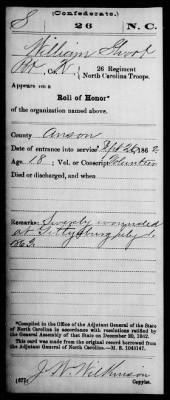 S (Confederate.)
26 N.C.
William Shoot
Pvt, Co. K, 26 Regiment
North Carolina Troops.
Appears on a
Roll of Honor*
of the organization named above.
County Anson
Date of entrance into service , 1862
Age 18; Vol. or Conscript Volunteer
Died or discharged, and when
Remarks: wounded
at Gettysburg July 1
1863.
*Compiled in the Office of the Adjutant General of the State
of North Carolina in accordance with resolutions ratified by
the General Assembly of that State on December 20, 1862.
This card was made from the original record borrowed from
the Adjutant General of North Carolina.—M. S. 1043147.
J. W. Wilkinson
(677) Copyist.